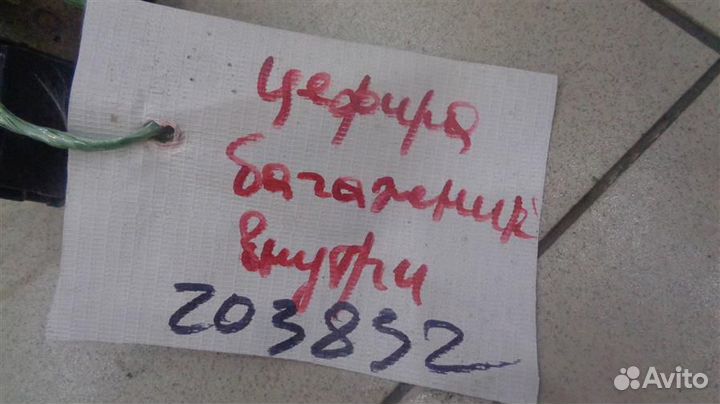 цефира
багажник
внутри
203832
Avito